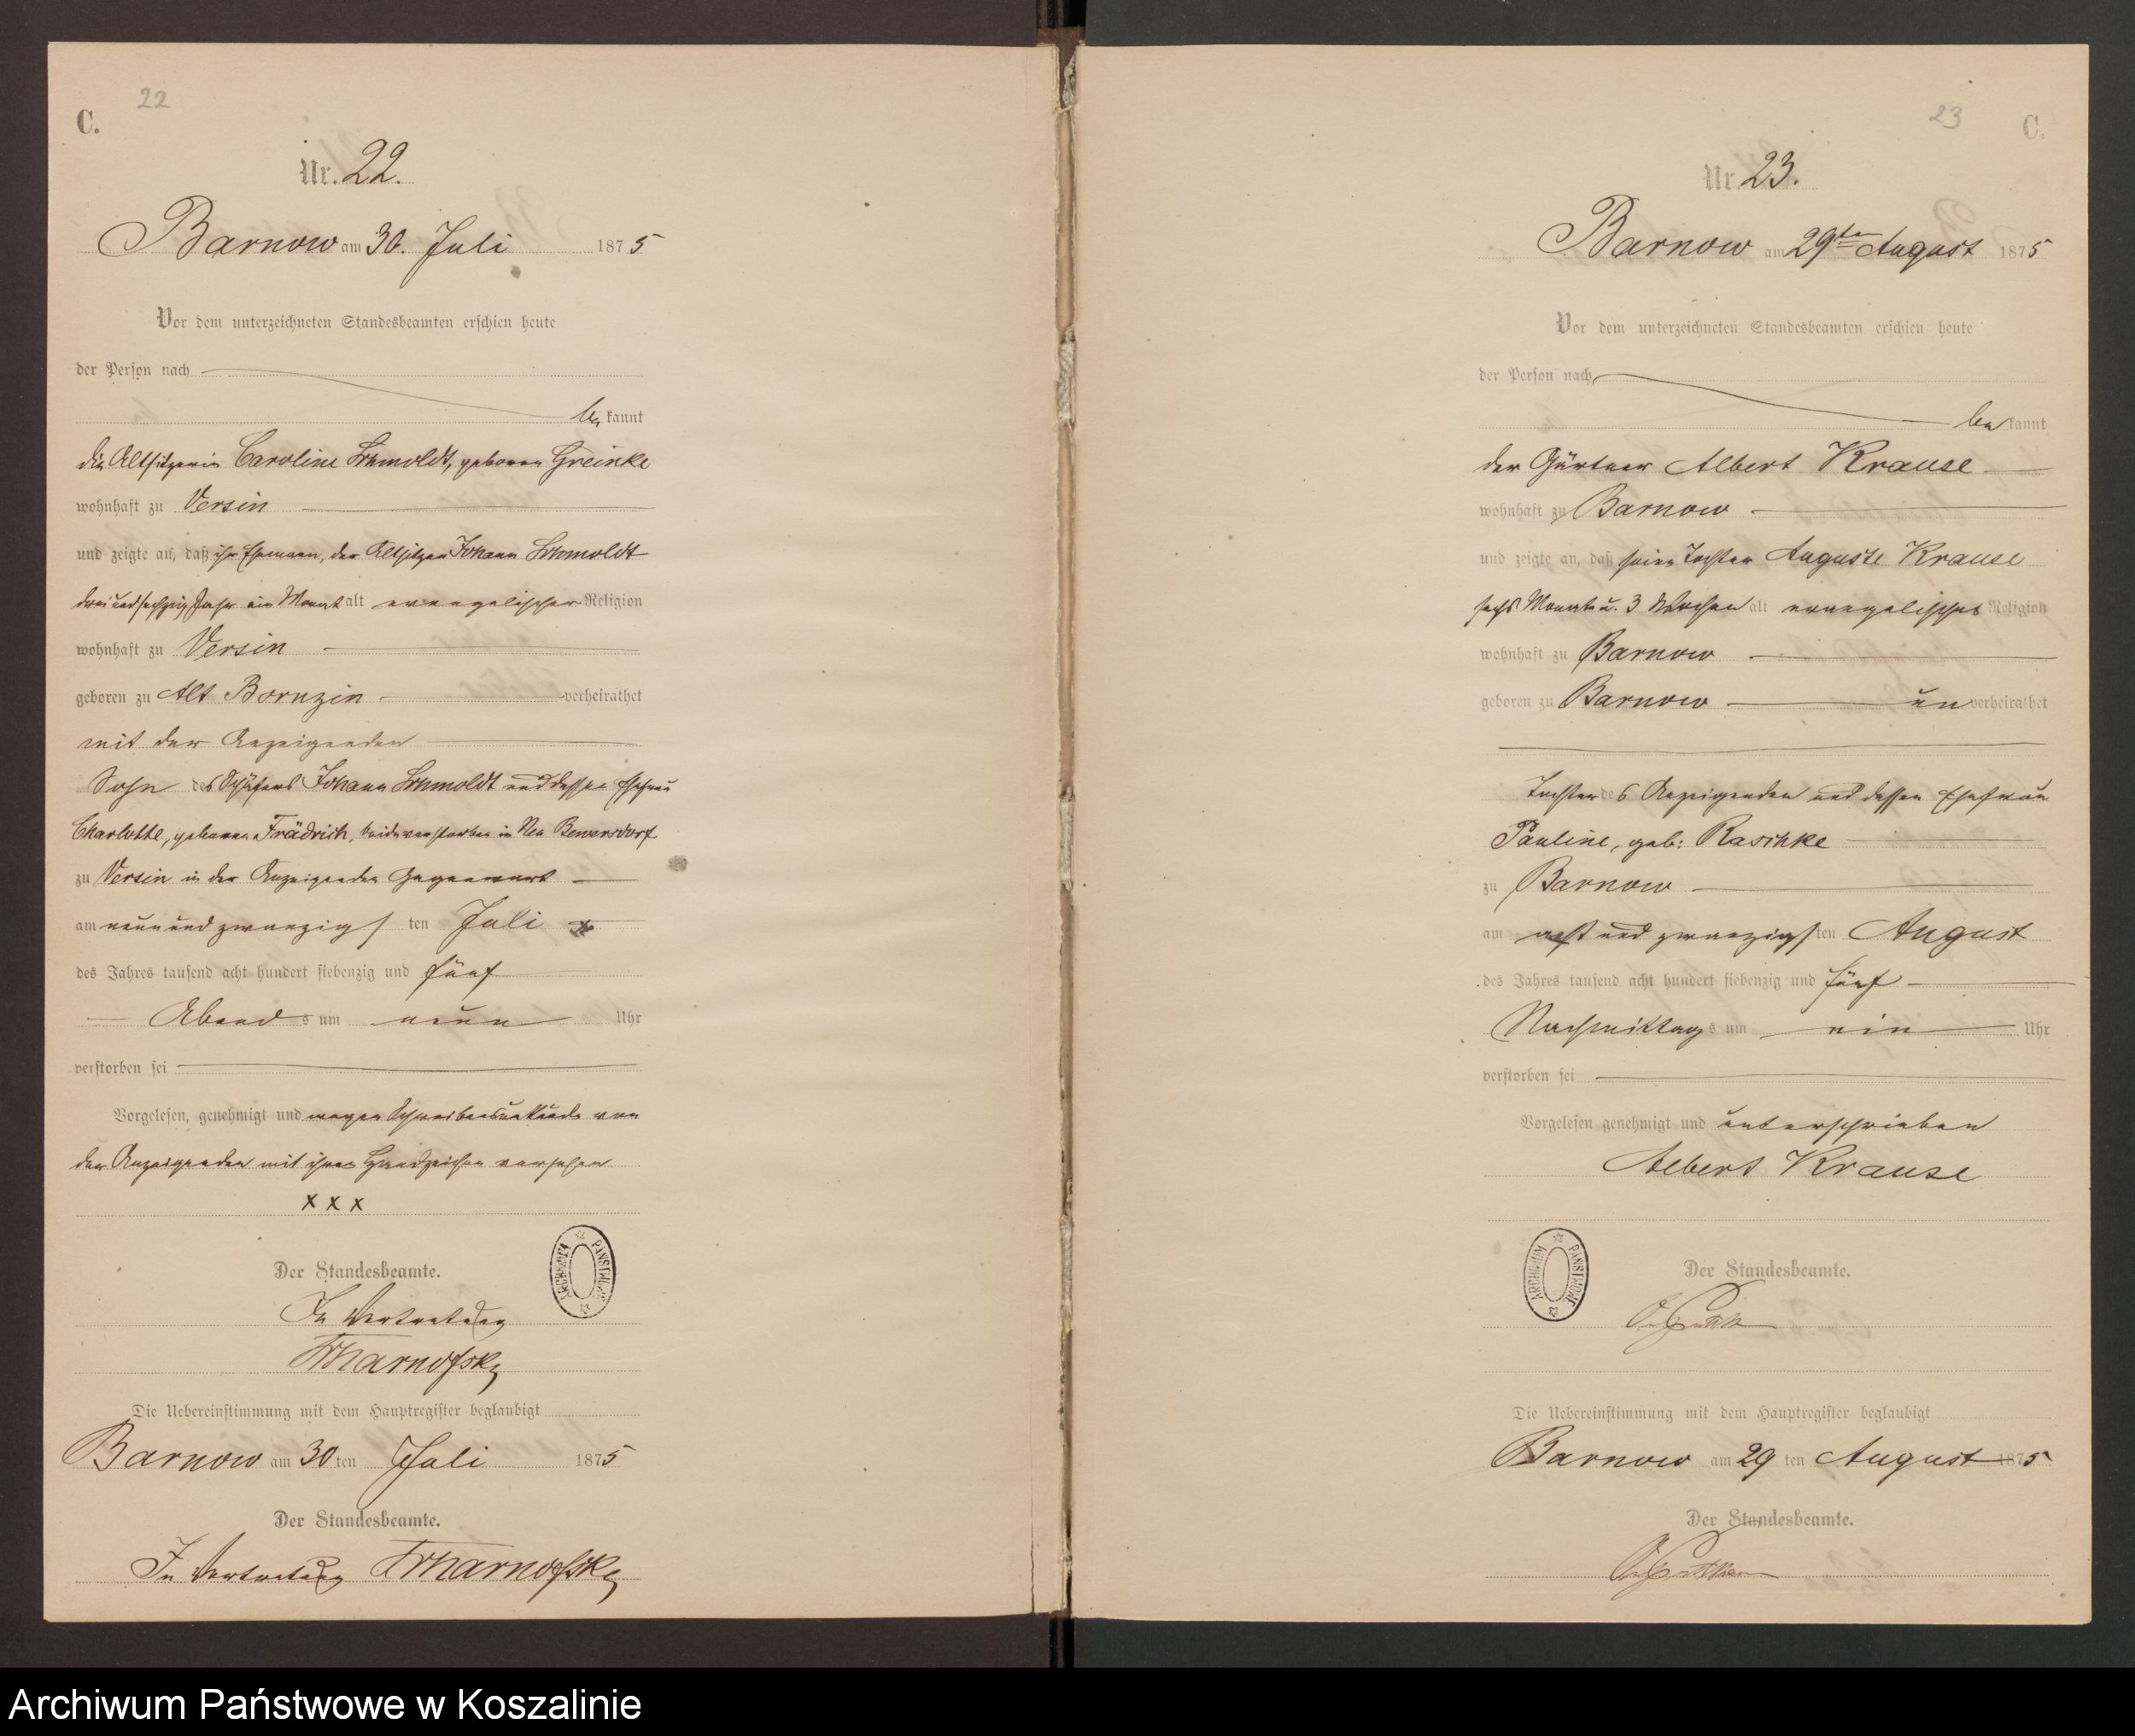 22
C.
Nr. 22.
Barnow am 30. Juli 1875
Vor dem unterzeichneten Standesbeamten erschien heute
der Person nach
bekannt
die Altsitzerin Caroline Schmoldt, geboren Greinke
wohnhaft zu Versin
und zeigte an, daß ihr Ehemann, der Altsitzer Johann Schmoldt
drei und sechzig Jahr ein Monat alt evangelischer Religion
wohnhaft zu Versin
geboren zu Alt Bornzin verheirathet
mit der Anzeigenden
Sohn des Schäfers Johann Schmoldt und dessen Ehefrau
Charlotte, geborene Frädrich, beide verstorben in Neu Bewersdorf
zu Versin in der Anzeigenden Gegenwart
am neun und zwanzigsten Juli
des Jahres tausend acht hundert siebenzig und fünf
Abends um neun Uhr
verstorben sei
Vorgelesen, genehmigt und wegen Schreibensunkunde von
der Anzeigenden mit ihren Handzeichen versehen
x x x
Der Standesbeamte.
In Vertretung
ARCHIWUM PAŃSTWOWE
Die Uebereinstimmung mit dem Hauptregister beglaubigt
Barnow am 30 ten Juli 1875
Der Standesbeamte.
In Vertretung
23
C.
Nr. 23.
Barnow am 29ten August 1875
Vor dem unterzeichneten Standesbeamten erschien heute
der Person nach
bekannt
der Gärtner Albert Krause
wohnhaft zu Barnow
und zeigte an, daß seine Tochter Auguste Krause
sechs Monate u. 3 Wochen alt evangelischer Religion
wohnhaft zu Barnow
geboren zu Barnow unverheirathet
Tochter des Anzeigenden und dessen Ehefrau
Pauline, geb: Raschke
zu Barnow
am acht und zwanzigsten August
des Jahres tausend acht hundert siebenzig und fünf
Nachmittags um ein Uhr
verstorben sei
Vorgelesen genehmigt und unterschrieben
Albert Krause
ARCHIWUM PAŃSTWOWE
Der Standesbeamte.
Die Uebereinstimmung mit dem Hauptregister beglaubigt
Barnow am 29 ten August 1875
Der Standesbeamte.
Archiwum Państwowe w Koszalinie